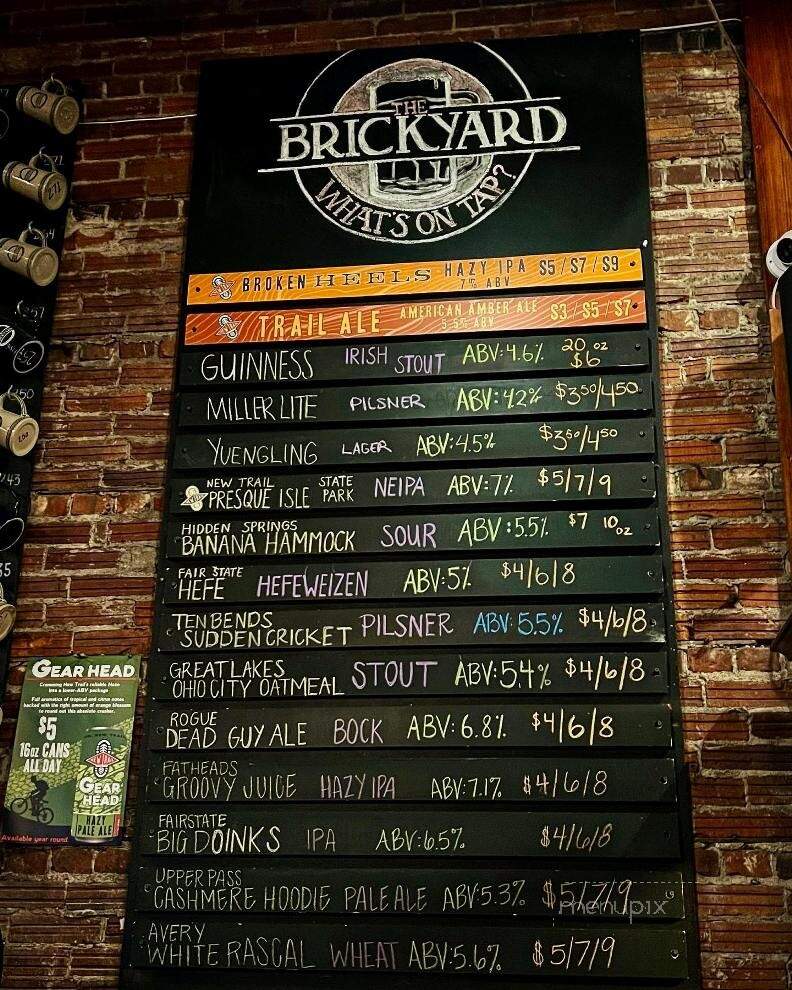 THE
BRICKYARD
WHAT'S ON TAP?
BROKEN HEELS HAZY IPA 7% ABV $5/$7/$9
TRAIL ALE AMERICAN AMBER ALE 5.5% ABV $3/$5/$7
GUINNESS IRISH STOUT ABV:4.6% 20 oz $6
MILLER LITE PILSNER ABV:4.2% $3.50/4.50
YUENGLING LAGER ABV:4.5% $3.50/4.50
NEW TRAIL PRESQUE ISLE STATE PARK NEIPA ABV:7% $5/7/9
HIDDEN SPRINGS BANANA HAMMOCK SOUR ABV:5.5% $7 10 oz
FAIR STATE HEFE HEFEWEIZEN ABV:5% $4/6/8
TEN BENDS SUDDEN CRICKET PILSNER ABV:5.5% $4/6/8
GREAT LAKES OHIO CITY OATMEAL STOUT ABV:5.4% $4/6/8
ROGUE DEAD GUY ALE BOCK ABV:6.8% $4/6/8
FATHEADS GROOVY JUICE HAZY IPA ABV:7.1% $4/6/8
FAIRSTATE BIG DOINKS IPA ABV:6.5% $4/6/8
UPPER PASS CASHMERE HOODIE PALE ALE ABV:5.3% $5/7/9
AVERY WHITE RASCAL WHEAT ABV:5.6% $5/7/9
GEAR HEAD
Cramming New Trail's reliable Haze
into a lower-ABV package
Full aromatics of tropical and citrus notes
backed with the right amount of orange blossom
to round out this absolute crusher.
$5
16oz CANS
ALL DAY
GEAR
HEAD
HAZY
PALE ALE
Available year round
menupix